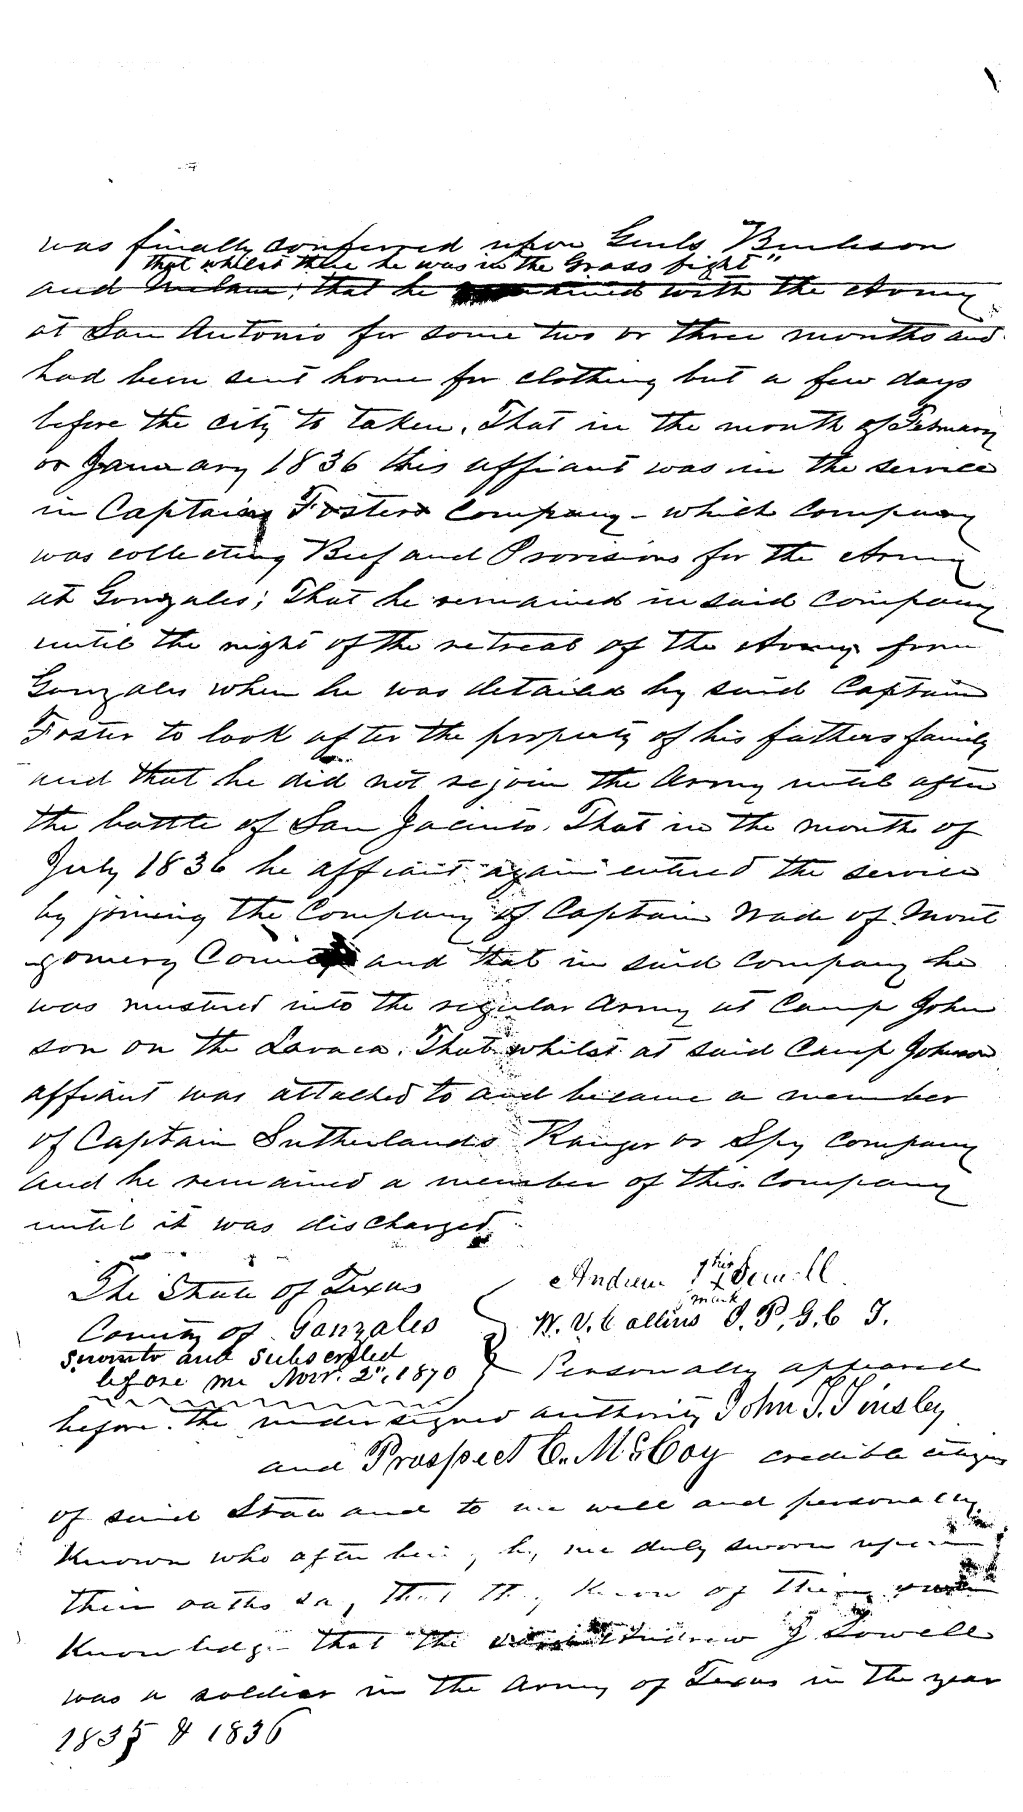 was finally conferred upon Genls Burleson
that whilst there he was in the Grass fight"
and Milam; that he remained with the Army
at San Antonio for some two or three months and
had been sent home for clothing but a few days
before the city to taken. That in the month of February
or January 1836 this affiant was in the service
in Captain Fosters Company - which Company
was collecting Beef and Provisions for the Army
at Gonzales; That he remained in said Company
until the night of the retreat of the Army from
Gonzales when he was detailed by said Captain
Foster to look after the property of his fathers family
and that he did not rejoin the Army until after
the battle of San Jacinto. That in the month of
July 1836 he affiant again entered the service
by joining the Company of Captain Wade of Mont
gomery County and that in said Company he
was mustered into the regular Army at Camp John
son on the Lavaca. That whilst at said Camp Johnson
affiant was attached to and became a member
of Captain Sutherlands Ranger or Spy Company
and he remained a member of this Company
until it was discharged
Andrew J his x mark Sowell
The State of Texas
County of Gonzales
W. V. Collins J. P. G. C. T.
Swornto and subscribed
before me Novr. 2", 1870
Personally appeared
before the undersigned authority John T. Tinsley
and Prospect C. McCoy credible citizens
of said State and to me well and personally
known who after being by me duly sworn upon
their oaths say that they know of their own
knowledge that the Andrew J Sowell
was a soldier in the Army of Texas in the year
1835 & 1836